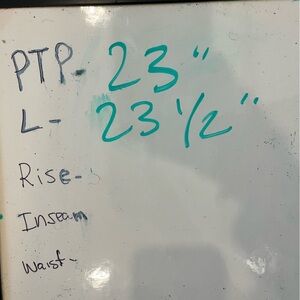 PTP- 23"
L- 23 1/2"
Rise-
Inseam
Waist-